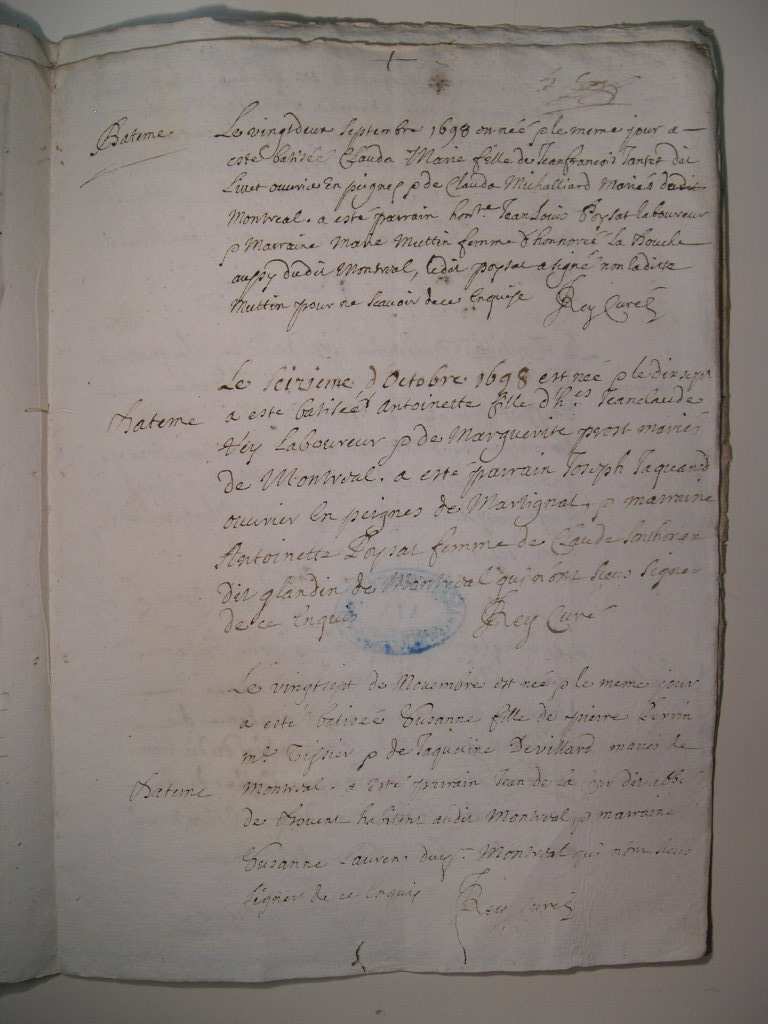 Bateme
Le vingtdeux Septembre 1698 est née & le meme jour a
esté batisée Clauda Marie fille de Jeanfrancois Tantet dit
Livet ouvrier En peignes & de Clauda Michalliard mariés dudit
Montreal. a esté parrain hon.te Jean Louis Poysat laboureur
& Marraine Marie Muttin femme d'honnoré La Douche
aussy dudit Montreal, ledit poysat a signé non laditte
Muttin pour ne scavoir de ce Enquise Rey Curé
Bateme
Le Seizieme d'Octobre 1698 est née & le dixsept
a esté batisée Antoinette fille d'h.es Jeanclaude
Rey Laboureur & de Marguerite prost mariés
de Montreal. a esté parrain Joseph Jaquand
ouvrier En peignes de Martignat, & marraine
Antoinette Poysat femme de Claude
Dit glandin de Montreal qui n'ont sceus signer
de ce Enquis Rey Curé
Bateme
Le vingtsept de Novembre est née & le meme jour
a esté batisée Susanne fille de pierre Perrin
m.e Tissier & de Jaqueline Devillard mariés de
Montreal. a esté parrain Jean de la dit
de habitant audit Montreal & marraine
Susanne Laurent Montreal qui n'ont sceus
signer de ce Enquis Rey Curé